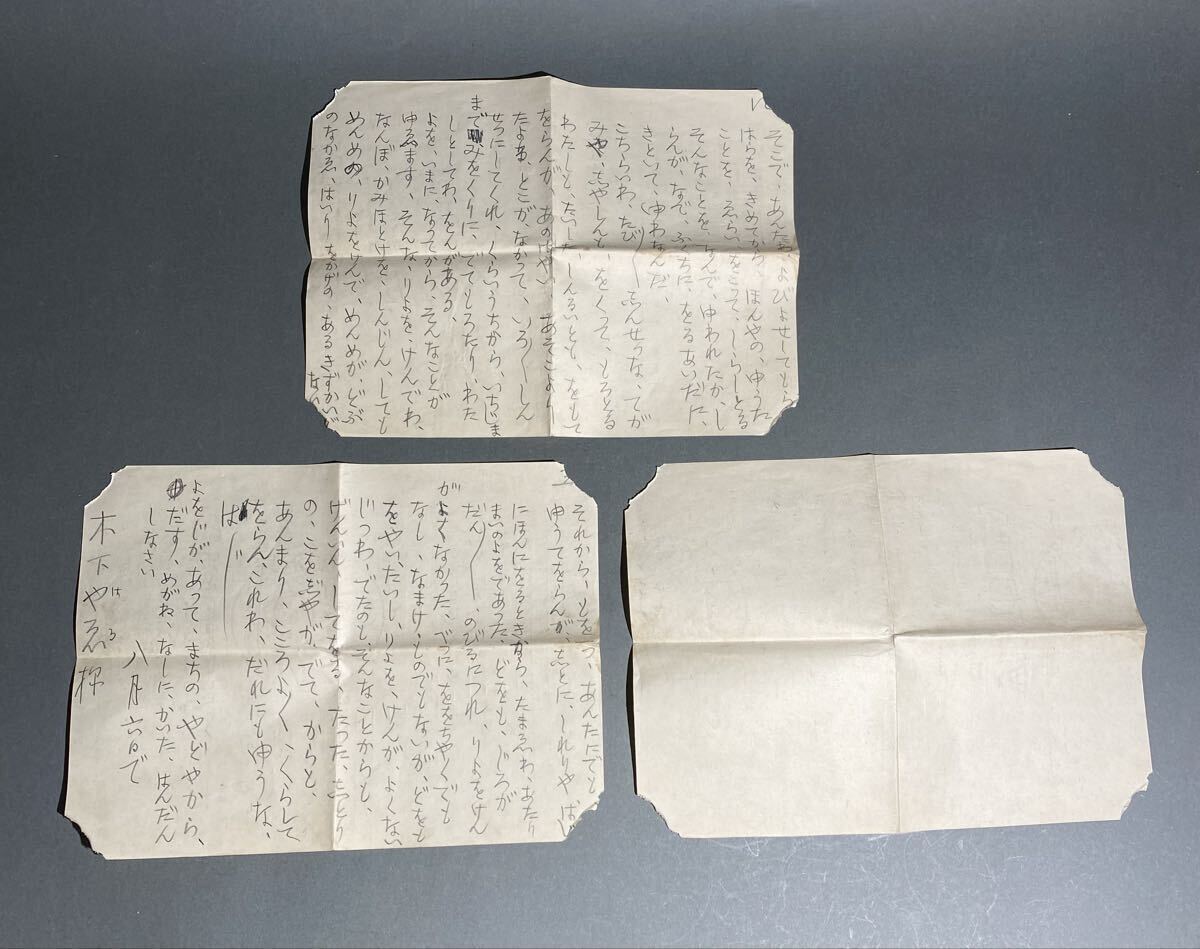 そこで、あんたを、よびよせしてもら
はらを、きめてから、ほんやの、ゆうた
ことを、ゑらい、をこって、しらしとる
そんなことを、なんで、ゆわれたか、し
らんが、なで、ふくちに、をるあいだに、
きといて、ゆわなんだ、
こちらいわ、たび〳〵志んせつな、てが
みや、志やしんも、をくって、もろとる
わたしと、たいした、しんるいとも、をもて
をらんが、あのはやい あそこより
たよる、とこが、なかって、いろ〳〵しん
せつにしてくれ、くらいうちから、いちじま
までみをくりに、でてもろたり、わた
しとしてわ、をんがある、
よを、いまに、なってから、そんなことが
ゆゑます、そんな、りよを、けんでわ、
なんぼ、かみほとけを、しんじん、しても
めんめの、りよをけんで、めんめが、どぶ
のなかゑ、はいり をかげの、あるきずかいが
ない
それから、もをつ、あんたにでも
ゆうてをらんが、志とに、しれりや はじ
にほんにをるときから、たまゑわ、あたり
まいのよをであった、どをも、じろが
だん〳〵、のびるにつれ、りよをけん
がよくなかった、べつに、ををちやくでも
なし、なまけ、ものでもないが、どをも
をやい、たいし、りよを、けんが、よくない
じつわ、でたのも、そんなことからも、
げんいん してをる、たった、志とり
の、こを志やが、でて、からも、
あんまり、こころよく、くらして
をらん、これわ、だれにも、ゆうな、
はじ
よをじが、あって、まちの、やどやから、
だす、めがね、なしに、かいた、はんだん
しなさい
八月六日で
木下やゑ様
はる